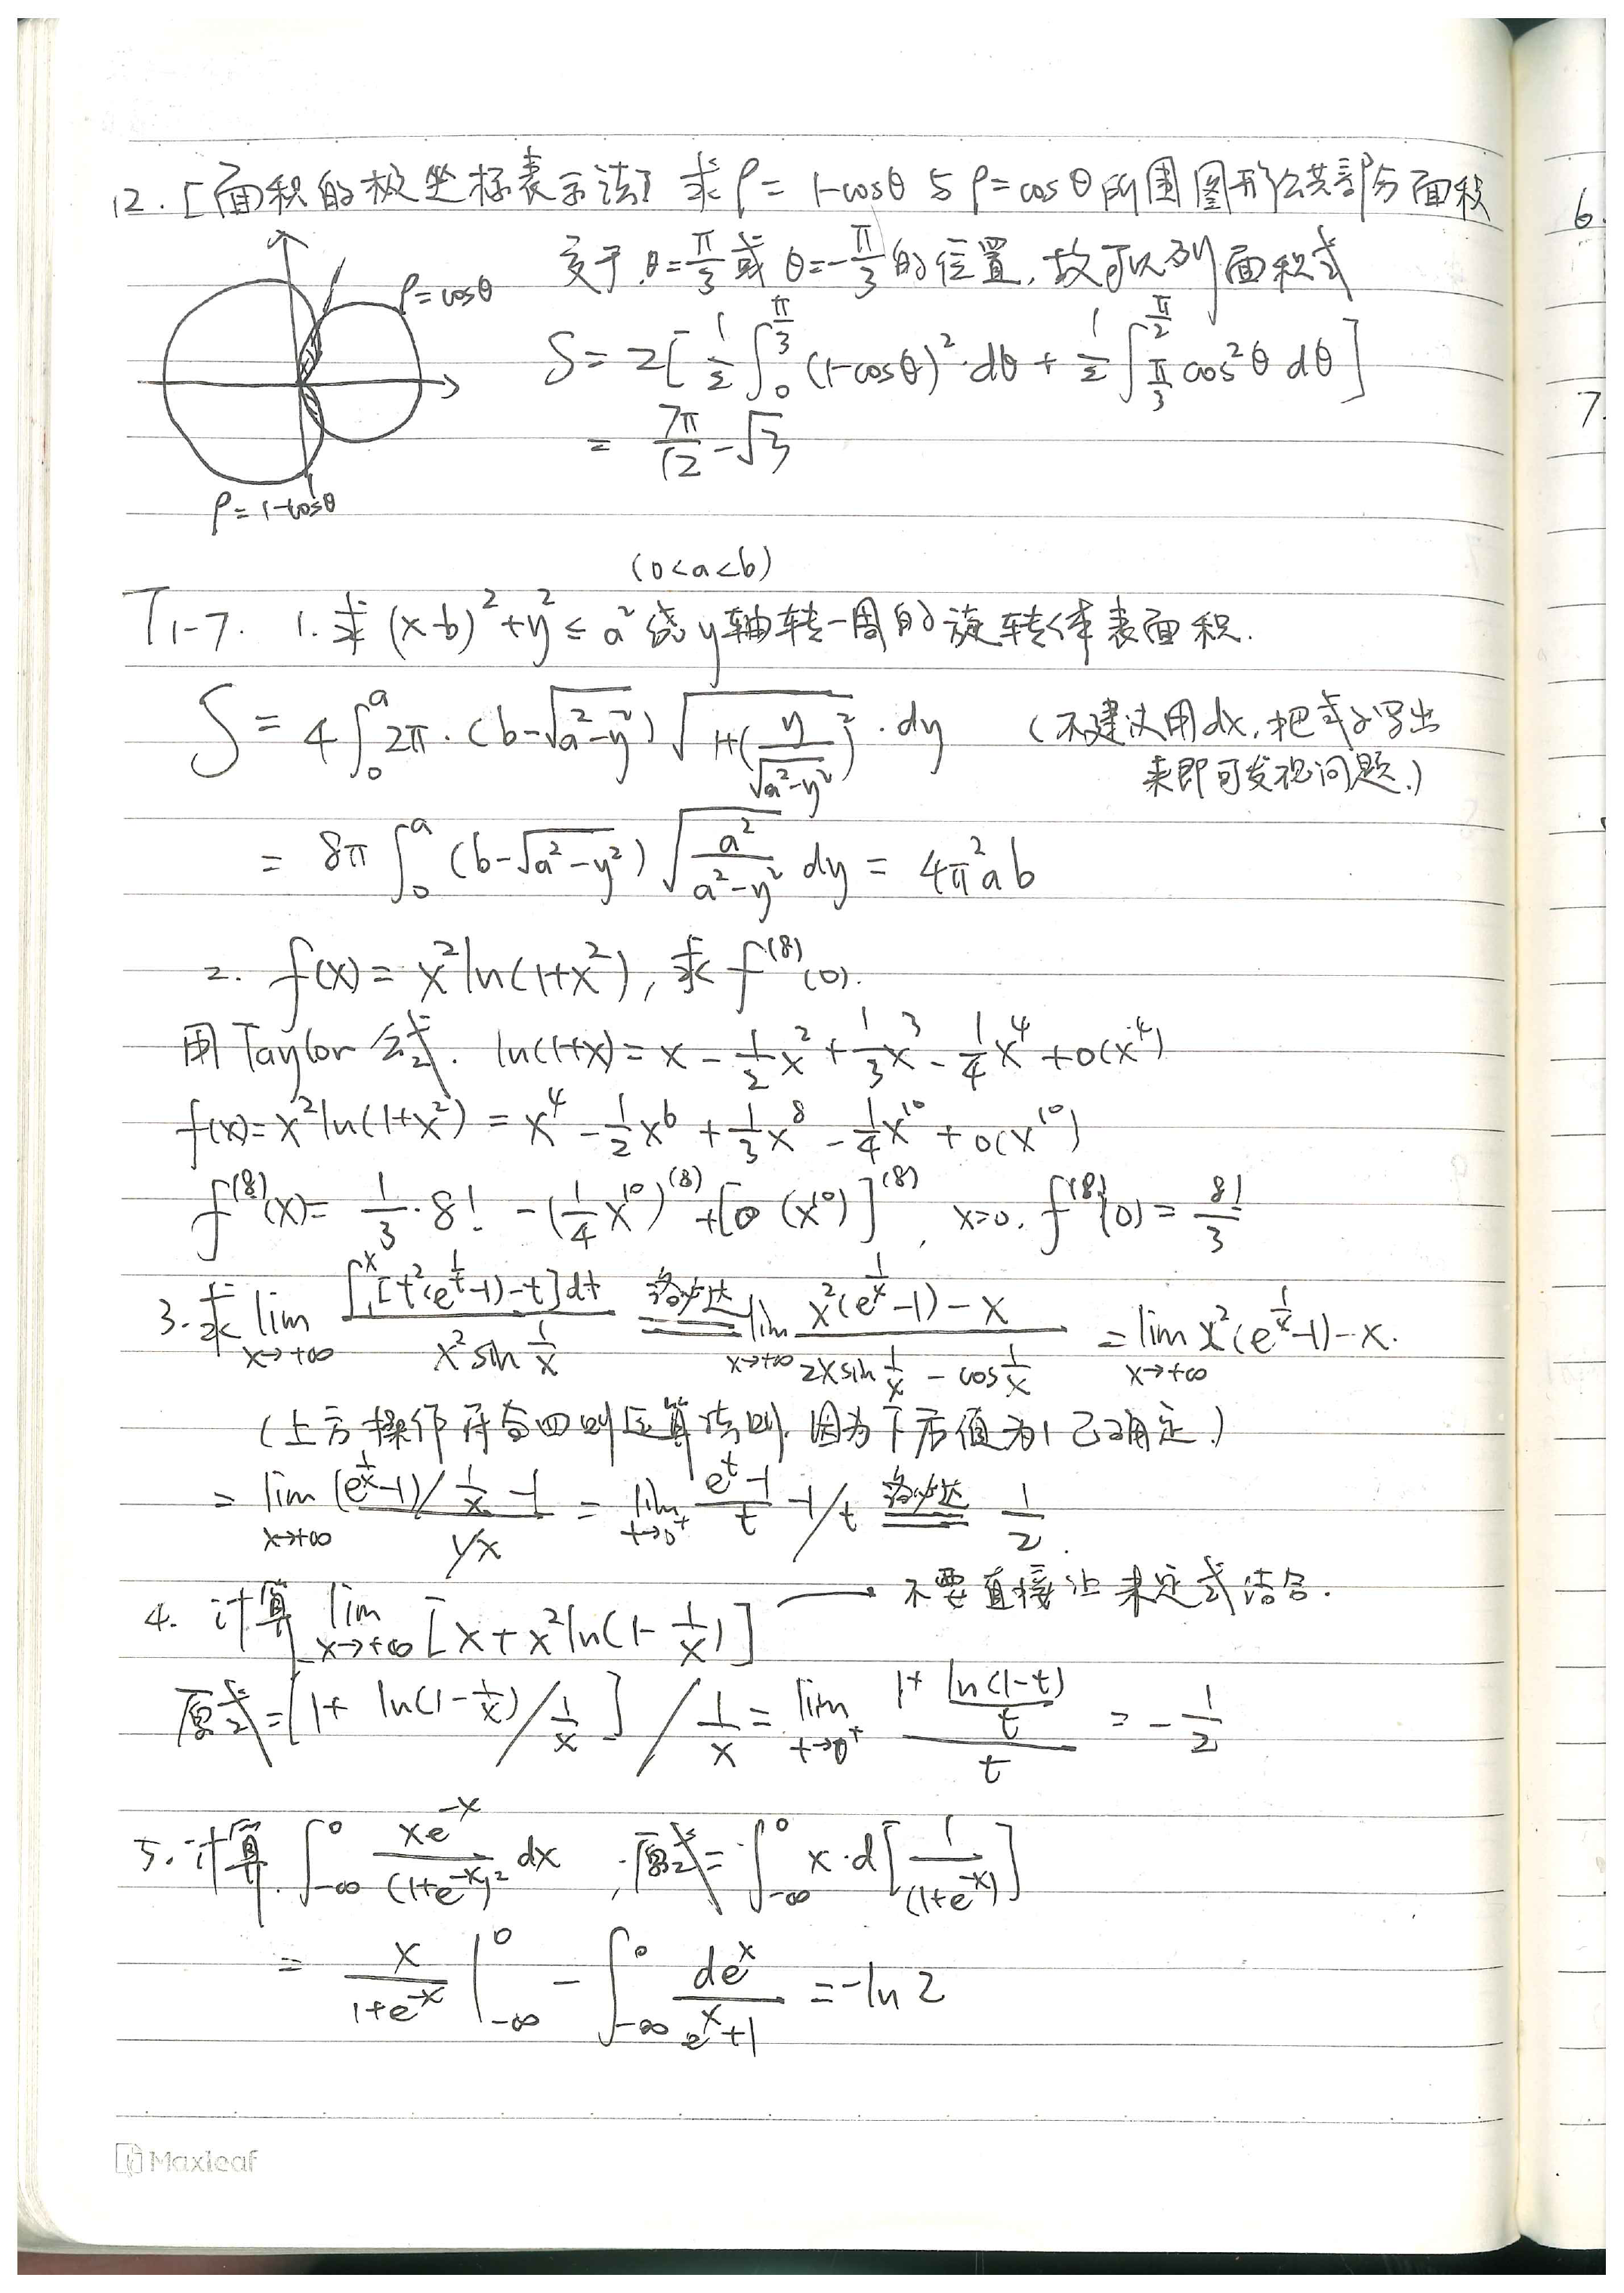 12.［面积的极坐标表示法］求ρ= 1-cosθ 与 ρ=cosθ 所围图形公共部分面积
交于 θ=π/3 或 θ=-π/3 的位置, 故可以列面积式
ρ=cosθ
S= 2[ 1/2 ∫_0^{π/3} (1-cosθ)^2·dθ + 1/2 ∫_{π/3}^{π/2} cos^2θ dθ ]
= 7π/12 - √3
ρ=1-cosθ
(0<a<b)
T1-7. 1. 求 (x-b)^2+y^2≤a^2 绕y轴转一周的旋转体表面积.
S = 4∫_0^a 2π·(b-√(a^2-y^2)) √(1+(y/√(a^2-y^2))^2)·dy (不建议用dx, 把式子写出
来即可发现问题.)
= 8π ∫_0^a (b-√(a^2-y^2)) √(a^2/(a^2-y^2)) dy = 4π^2ab
2. f(x)= x^2ln(1+x^2), 求 f^(8)(0).
用Taylor公式. ln(1+x)= x - 1/2 x^2 + 1/3 x^3 - 1/4 x^4 + o(x^4)
f(x)=x^2ln(1+x^2) = x^4 - 1/2 x^6 + 1/3 x^8 - 1/4 x^10 + o(x^10)
f^(8)(x)= 1/3·8! - (1/4 x^10)^(8) +[o(x^10)]^(8), x=0. f^(8)(0)= 8!/3
3. 求 lim_{x→+∞} ∫_1^x[t^2(e^{1/t}-1)-t]dt / x^2 sin 1/x 洛必达 lim_{x→+∞} x^2(e^{1/x}-1)-x / 2x sin 1/x - cos 1/x = lim_{x→+∞} x^2(e^{1/x}-1)-x.
(上方操作符合四则运算法则, 因为下方值为1已确定.)
= lim_{x→+∞} (e^{1/x}-1)/ 1/x -1 / 1/x = lim_{t→0^+} e^t-1 / t -1/t 洛必达 1/2.
4. 计算 lim_{x→+∞} [x+x^2ln(1- 1/x)] — 不要直接让未定式结合.
原式=[1+ ln(1- 1/x) / 1/x ] / 1/x = lim_{t→0^+} (1+ ln(1-t)/t) / t = - 1/2
5. 计算 ∫_{-∞}^0 xe^{-x}/(1+e^{-x})^2 dx, 原式= ∫_{-∞}^0 x·d[ 1/(1+e^{-x}) ]
= x/(1+e^{-x}) |_{-∞}^0 - ∫_{-∞}^0 de^x/(e^x+1) =-ln2
Maxleaf
6.
7.